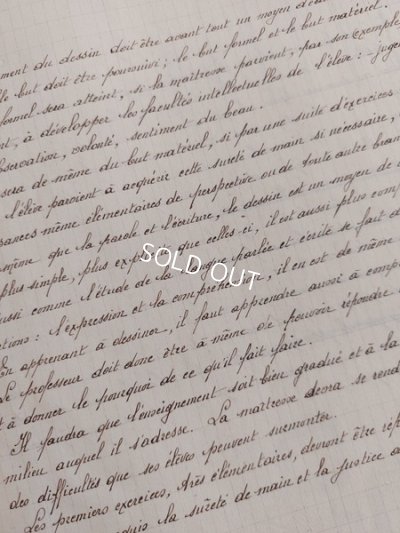 ment du dessin doit être avant tout un moyen
le but doit être poursuivi ; le but formel et le but matériel.
formel sera atteint, si la maîtresse parvient, par son exemple
à développer les facultés intellectuelles de l'élève : juge
observation, volonté, sentiment du beau.
sera de même du but matériel, si par une suite d'exercices
l'élève parvient à acquérir cette sûreté de main si nécessaire,
sances même élémentaires de perspective ou de toute autre bran
même que la parole et l'écriture, le dessin est un moyen de
plus simple, plus que celles-ci, il est aussi plus comp
ussi comme l'étude de la langue parlée et écrite se fait d
tions : l'expression et la compréhension, il en est de même
En apprenant à dessiner, il faut apprendre aussi à comp
Le professeur doit donc être à même de pouvoir répondre
t à donner le pourquoi de ce qu'il fait faire.
Il faudra que l'enseignement soit bien gradué et à la
milieu auquel il s'adresse. La maîtresse devra se rend
des difficultés que ses élèves peuvent surmonter.
Les premiers exercices, très élémentaires, devront être
la sûreté de main et la justice
SOLD OUT